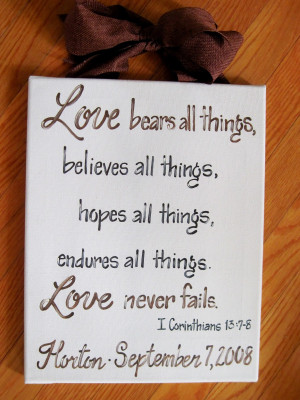 Love bears all things,
believes all things,
hopes all things,
endures all things.
Love never fails.
I Corinthians 13:7-8
Horton · September 7, 2008